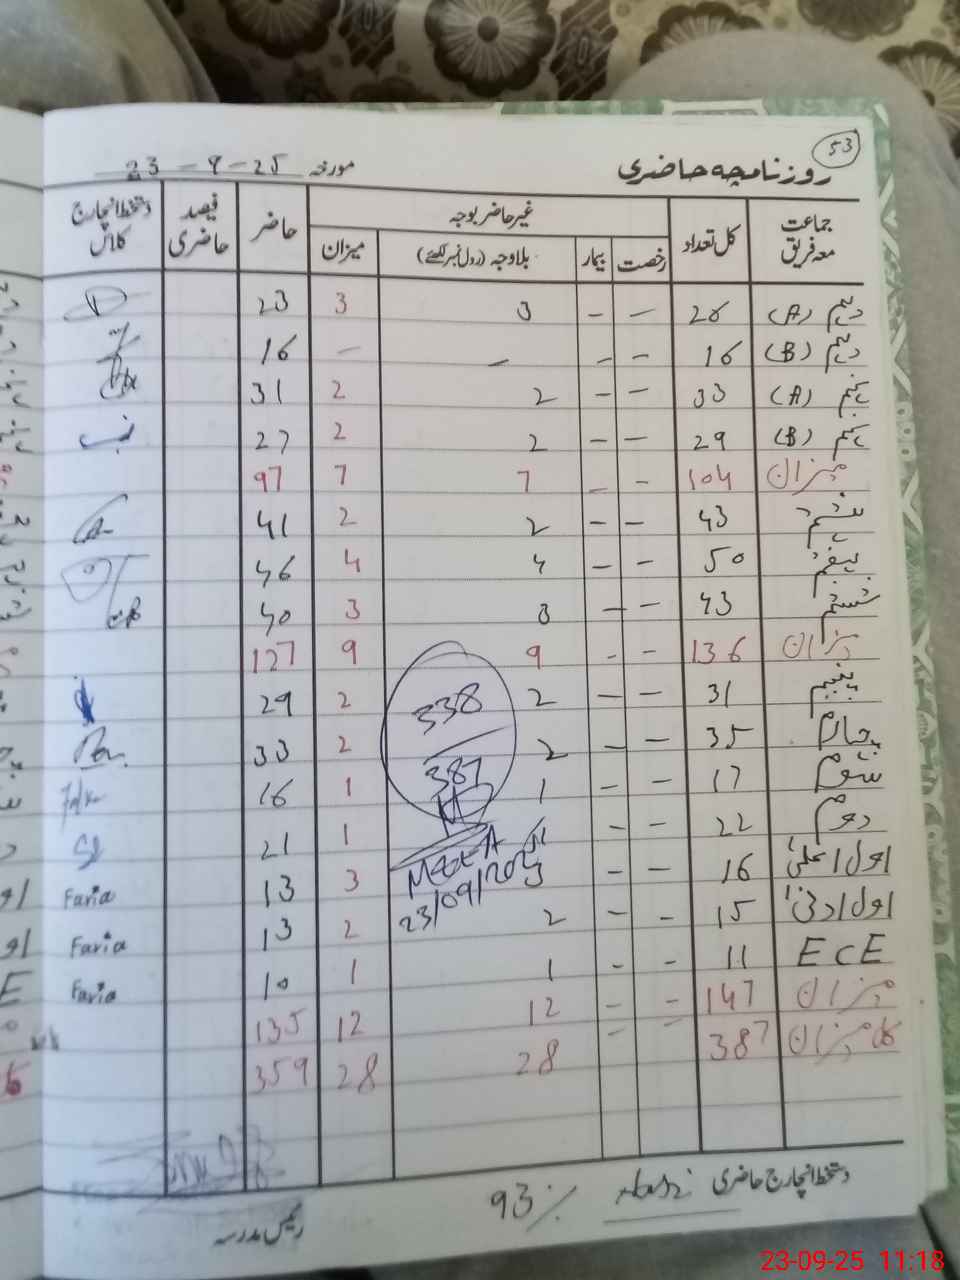 53
روزنامچہ حاضری مورخہ 23-9-25
جماعت معہ فریق کل تعداد غیر حاضر بوجہ حاضر فیصد حاضری دستخط انچارج کلاس
رخصت بیمار بلاوجہ (رول نمبر لکھئے) میزان
دہم (A) 26 - - 3 3 23
دہم (B) 16 - - - - 16
نہم (A) 33 - - 2 2 31
نہم (B) 29 - - 2 2 27
میزان 104 - - 7 7 97
ہشتم 43 - - 2 2 41
ہفتم 50 - - 4 4 46
ششم 43 - - 3 3 40
میزان 136 - - 9 9 127
پنجم 31 - - 2 2 29
چہارم 35 - - 2 2 33
سوم 17 - - 1 1 16
دوم 22 - - 1 1 21
اول اعلیٰ 16 - - 3 3 13 Faria
اول ادنیٰ 15 - - 2 2 13 Faria
ECE 11 - - 1 1 10 Faria
میزان 147 - - 12 12 135
کل میزان 387 - - 28 28 359
338
387
MEEA
23/09/2025
دستخط انچارج حاضری 93%
رئیس مدرسہ
23-09-25 11:18